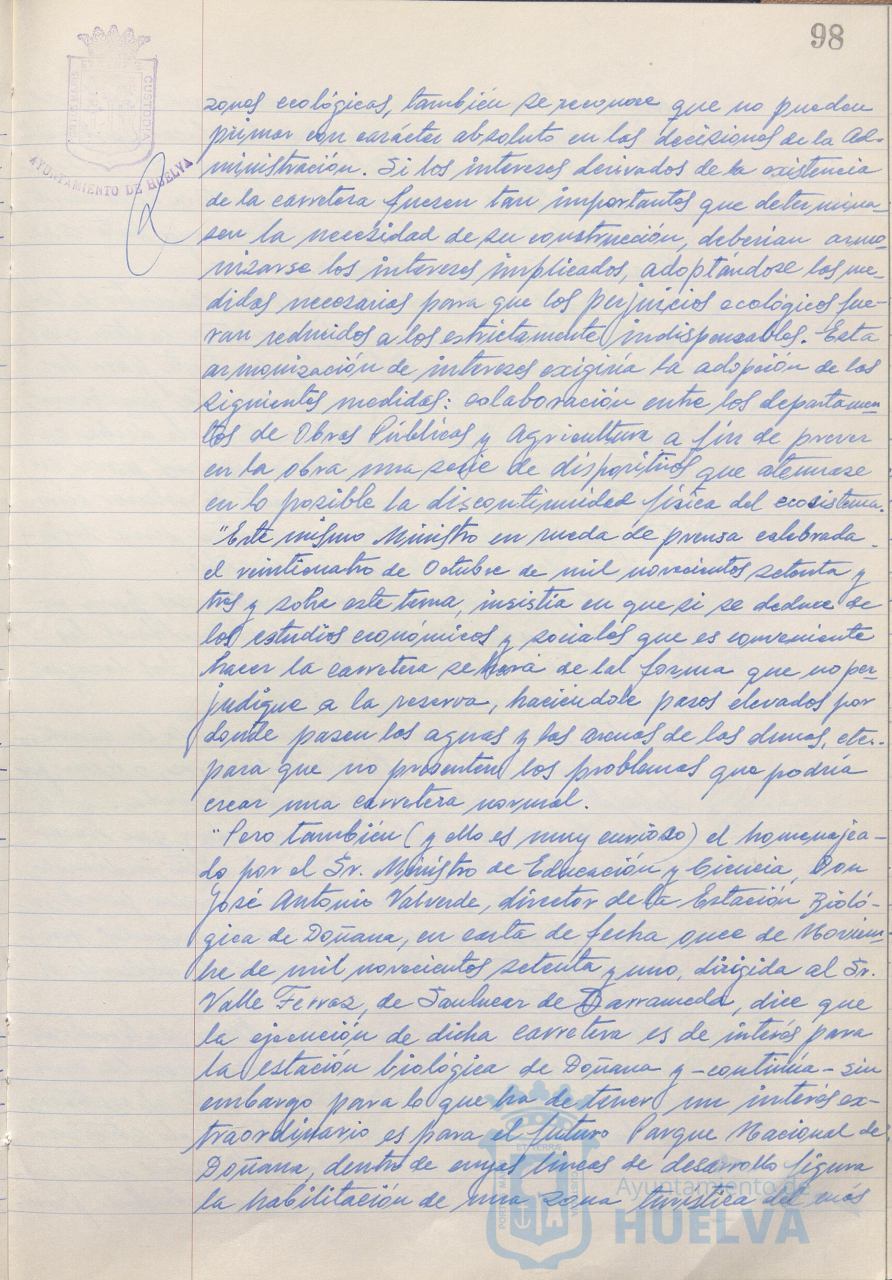 98
AYUNTAMIENTO DE HUELVA
zonas ecológicas, también se reconoce que no pueden
primar con carácter absoluto en las decisiones de la Ad-
ministración. Si los intereses derivados de la existencia
de la carretera fuesen tan importantes que determina-
sen la necesidad de su construcción, deberian armo-
nizarse los intereses implicados, adoptándose las me-
didas necesarias para que los perjuicios ecológicos fue-
ran reducidos a los estrictamente indispensables. Esta
armonización de intereses exigiría la adopción de las
siguientes medidas: colaboración entre los departamen-
tos de Obras Públicas y Agricultura a fin de prever
en la obra una serie de dispositivos que atenuase
en lo posible la discontinuidad física del ecosistema.
"Este mismo Ministro en rueda de prensa celebrada
el veinticuatro de Octubre de mil novecientos setenta y
tres y sobre este tema, insistía en que si se deduce de
los estudios económicos y sociales que es conveniente
hacer la carretera se hará de tal forma que no per-
judique a la reserva, haciéndole pasos elevados por
donde pasen las aguas y las arenas de las dunas, etc.
para que no presenten los problemas que podría
crear una carretera normal.
"Pero también (y ello es muy curioso) el homenajea-
do por el Sr. Ministro de Educación y Ciencia, Don
José Antonio Valverde, director de la Estación Bioló-
gica de Doñana, en carta de fecha once de Noviem-
bre de mil novecientos setenta y uno, dirigida al Sr.
Valle Ferraz, de Sanlucar de Barrameda, dice que
la ejecución de dicha carretera es de interés para
la estación biológica de Doñana y -continúa- sin
embargo para lo que ha de tener un interés ex-
traordinario es para el futuro Parque Nacional de
Doñana, dentro de cuyas lineas de desarrollo figura
la habilitación de una zona turística del más
Ayuntamiento de
HUELVA